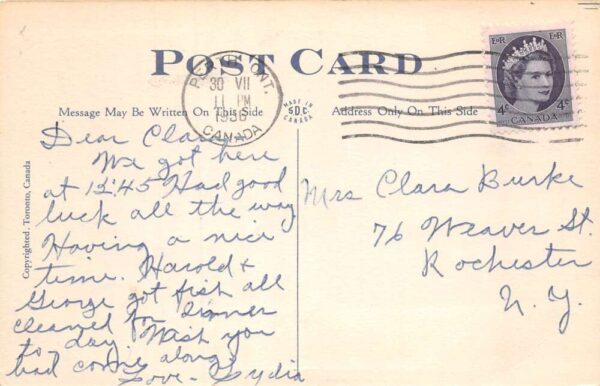 POST CARD
ONT.
30 VII
11 PM
CANADA
Message May Be Written On This Side
MADE IN
SDC
CANADA
Address Only On This Side
E II R
E II R
4¢
4¢
CANADA
Copyrighted. Toronto, Canada
Dear Clara,
We got here
at 12:45 Had good
luck all the way
Having a nice
time. Harold +
George got fish all
cleaned for dinner
to day. Wish you
had come along.
Love - Lydia
Mrs Clara Burke
76 Weaver St.
Rochester
N. Y.